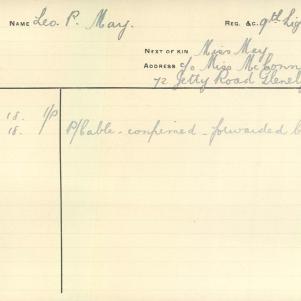 NAME Leo. P. May. REG. &C. 9th Lig
NEXT OF KIN Miss May
ADDRESS c/o Miss McConn
72 Jetty Road Glenel
18. 1/p P/Cable - confirmed - forwarded b
18.